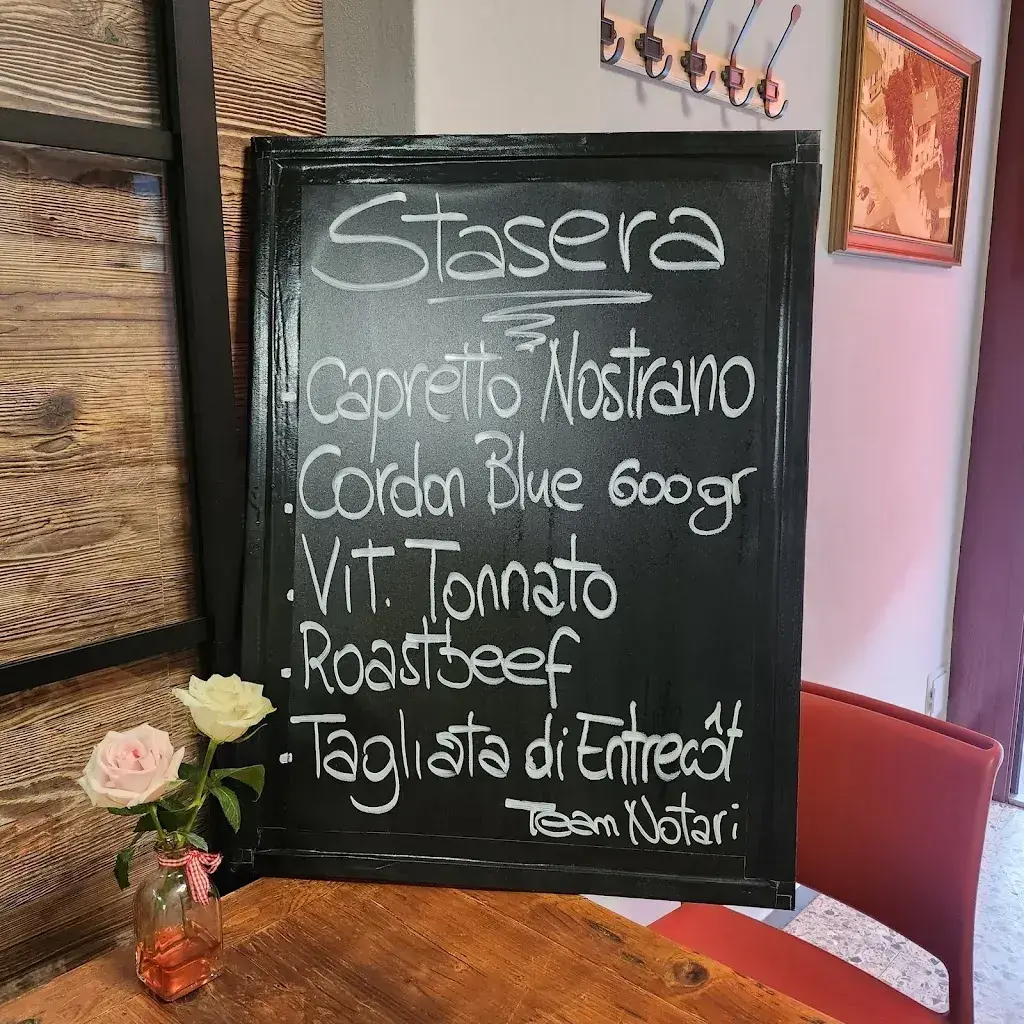 Stasera
- Capretto Nostrano
. Cordon Blue 600gr
. Vit. Tonnato
. Roastbeef
- Tagliata di Entrecôt
Team Notari